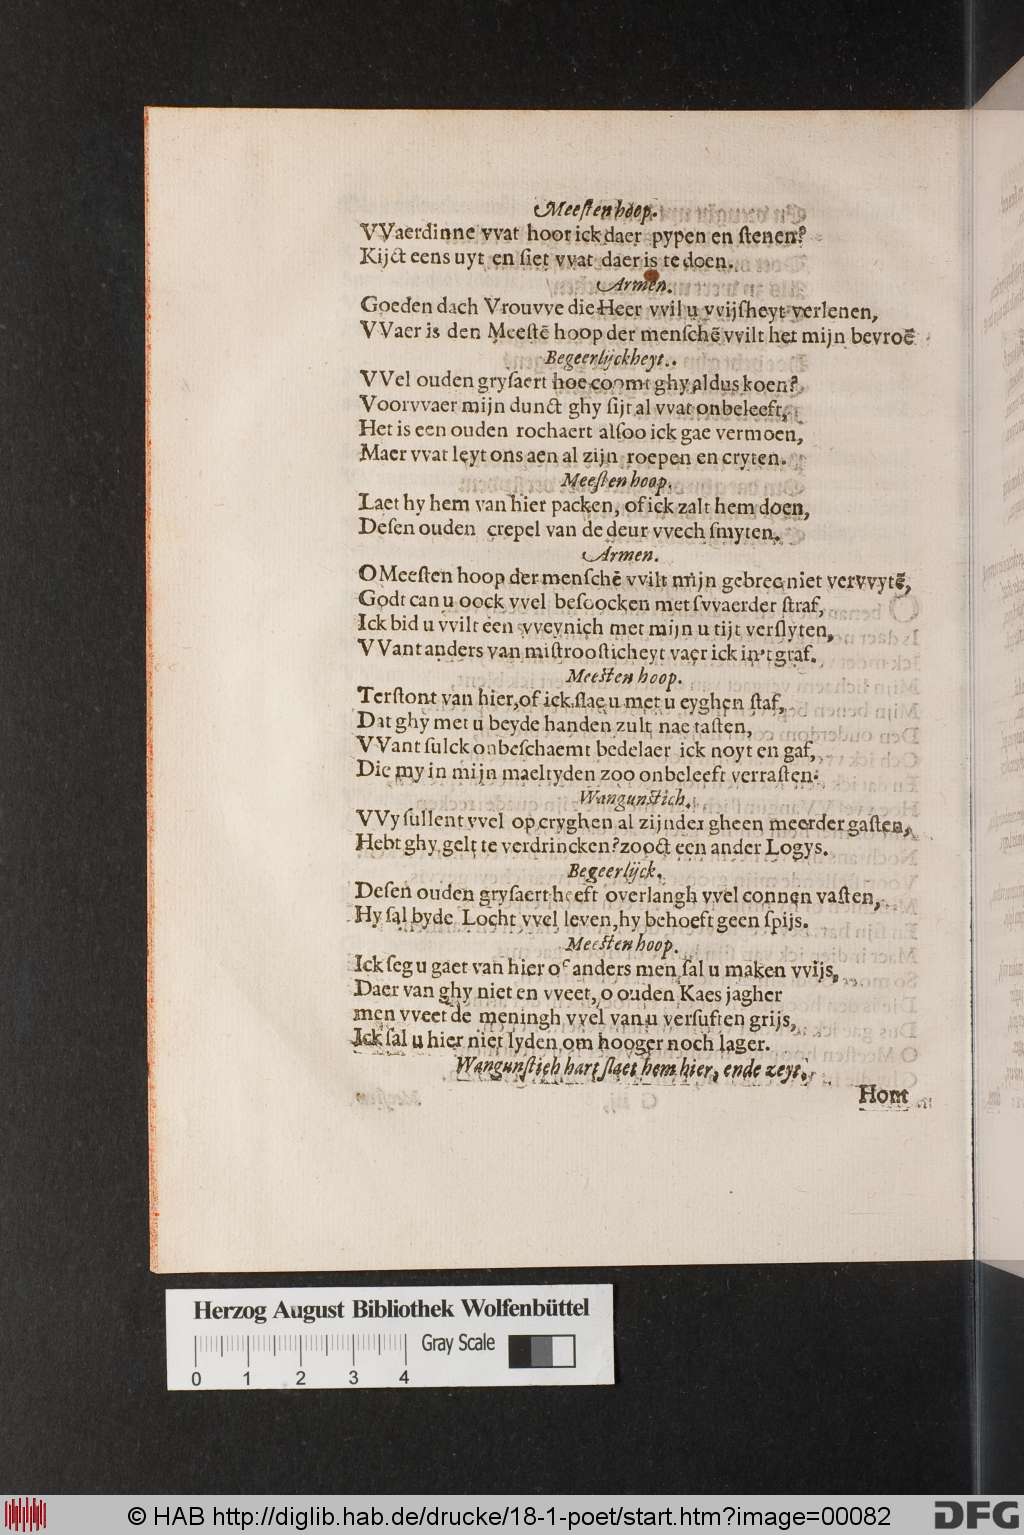 Meeſten hoop.
VVaerdinne vvat hoor ick daer pypen en ſtenen?
Kijct eens uyt en ſiet vvat daer is te doen.
Armen.
Goeden dach Vrouvve die Heer vvil u vvijſheyt verlenen,
VVaer is den Meeſtē hoop der menſchē vvilt het mijn bevroē
Begeerlijckheyt..
VVel ouden gryſaert hoe coomt ghy aldus koen?
Voorvvaer mijn dunct ghy ſijt al vvat onbeleeft,
Het is een ouden rochaert alſoo ick gae vermoen,
Maer vvat leyt ons aen al zijn roepen en cryten.
Meeſten hoop.
Laet hy hem van hier packen, of ick zalt hem doen,
Deſen ouden crepel van de deur vvech ſmyten.
Armen.
O Meeſten hoop der menſchē vvilt mijn gebrec niet vervvytē,
Godt can u oock vvel beſoocken met ſvvaerder ſtraf,
Ick bid u vvilt een vveynich met mijn u tijt verſlyten,
VVant anders van miſtrooſticheyt vaer ick in't graf.
Meeſten hoop.
Terſtont van hier, of ick ſlae u met u eyghen ſtaf,
Dat ghy met u beyde handen zult nae taſten,
VVant ſulck onbeſchaemt bedelaer ick noyt en gaf,
Die my in mijn maeltyden zoo onbeleeft verraſten.
Wangunſtich.
VVy ſullent vvel op cryghen al zijnder gheen meerder gaſten,
Hebt ghy gelt te verdrincken? zooct een ander Logys.
Begeerlijck.
Deſen ouden gryſaert heeft overlangh vvel connen vaſten,
Hy ſal byde Locht vvel leven, hy behoeft geen ſpijs.
Meeſten hoop.
Ick ſeg u gaet van hier of anders men ſal u maken vvijs,
Daer van ghy niet en vveet, o ouden Kaes jagher
men vveet de meningh vvel van u verſuften grijs,
Ick ſal u hier niet lyden om hooger noch lager.
Wangunſtich hart ſlaet hem hier, ende zeyt.
Hont
Herzog August Bibliothek Wolfenbüttel
Gray Scale
0 1 2 3 4
© HAB http://diglib.hab.de/drucke/18-1-poet/start.htm?image=00082
DFG